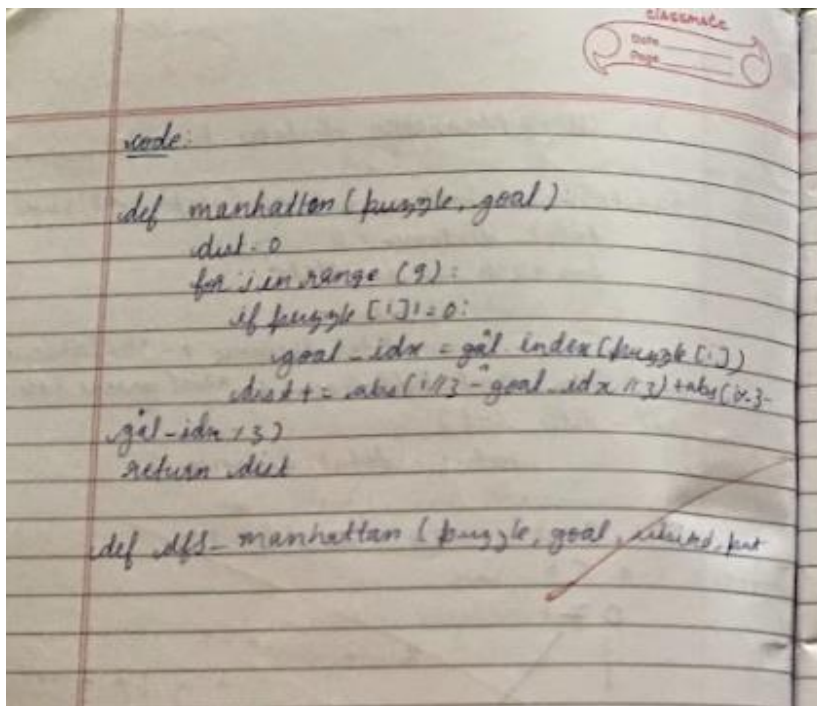 classmate
Date
Page
code:
def manhattan (puzzle, goal)
dist = 0
for i in range (9):
if puzzle [i] != 0:
goal_idx = goal.index(puzzle[i])
dist += abs(i//3 - goal_idx//3) + abs(i%3-
goal_idx%3)
return dist
def dfs_manhattan (puzzle, goal, visited, pat